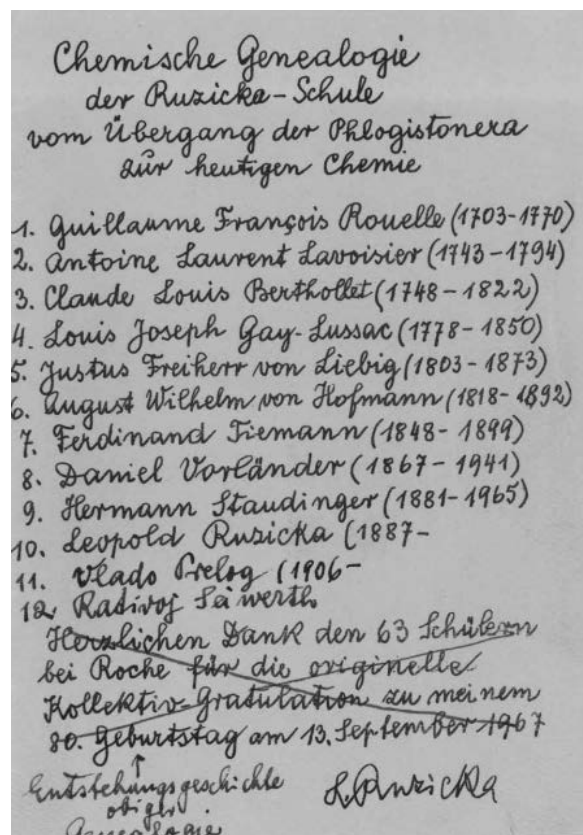 Chemische Genealogie
der Ruzicka-Schule
vom Übergang der Phlogistonera
zur heutigen Chemie
1. Guillaume François Rouelle (1703-1770)
2. Antoine Laurent Lavoisier (1743-1794)
3. Claude Louis Berthollet (1748-1822)
4. Louis Joseph Gay-Lussac (1778-1850)
5. Justus Freiherr von Liebig (1803-1873)
6. August Wilhelm von Hofmann (1818-1892)
7. Ferdinand Tiemann (1848-1899)
8. Daniel Vorländer (1867-1941)
9. Hermann Staudinger (1881-1965)
10. Leopold Ruzicka (1887-
11. Vlado Prelog (1906-
12. Radivoj
Herzlichen Dank den 63 Schülern
bei Roche für die originelle
Kollektiv-Gratulation zu meinem
80. Geburtstag am 13. September 1967
Entstehungsgeschichte
obiger
Genealogie
L. Ruzicka